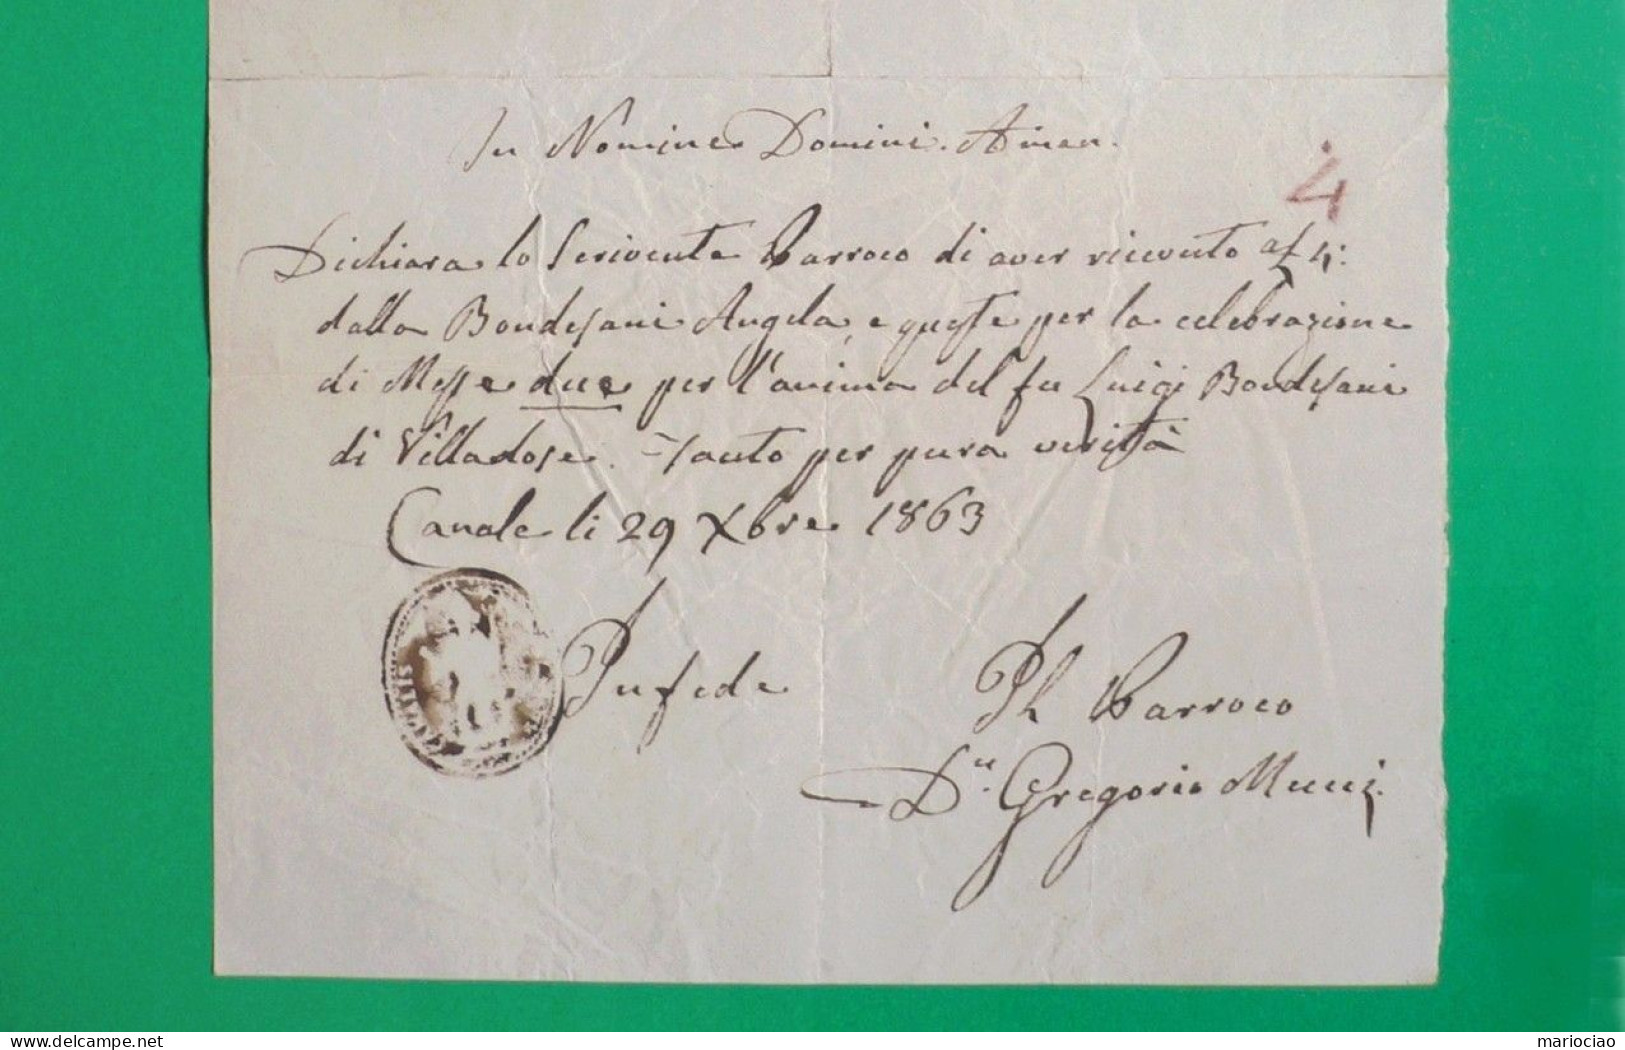 In Nomine Domini. Amen.
4
Dichiara lo Scrivente Parroco di aver ricevuto af 4:
dalla Bondesani Angela, e queste per la celebrazione
di Messe due per l'anima del fu Luigi Bondesani
di Villadose. Tanto per pura verità
Canale li 29 Xbre 1863
In fede
Ph Parroco
Dn. Gregorio
delcampe.net
mariociao